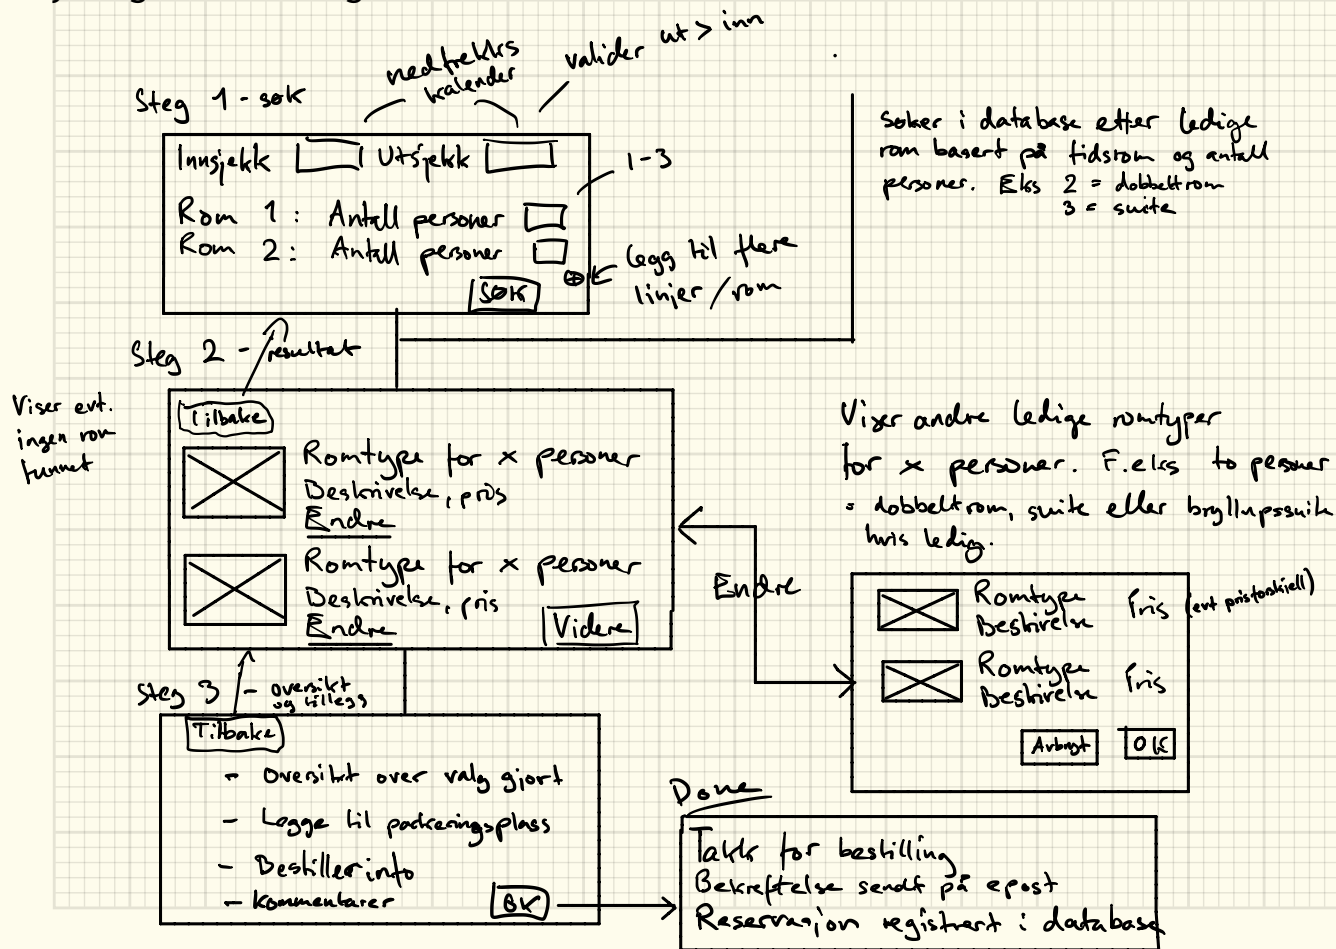 Steg 1 - søk
nedtrekks
kalender
valider ut > inn
Innsjekk Utsjekk
1-3
Rom 1: Antall personer
Rom 2: Antall personer
SØK
Legg til flere
linjer / rom
Søker i database etter ledige
rom basert på tidsrom og antall
personer. Eks 2 = dobbeltrom
3 = suite
Steg 2 - resultat
Viser evt.
ingen rom
funnet
Tilbake
Romtype for x personer
Beskrivelse, pris
Endre
Romtype for x personer
Beskrivelse, pris
Endre
Videre
Endre
Viser andre ledige romtyper
for x personer. F.eks to personer
= dobbeltrom, suite eller bryllupssuite
hvis ledig.
Romtype Pris (evt prisforskjell)
Beskrivelse
Romtype Pris
Beskrivelse
Avbryt OK
Steg 3 - oversikt
og tillegg
Tilbake
- Oversikt over valg gjort
- Legge til parkeringsplass
- Bestillerinfo
- Kommentarer
OK
Done
Takk for bestilling
Bekreftelse sendt på epost
Reservasjon registrert i database